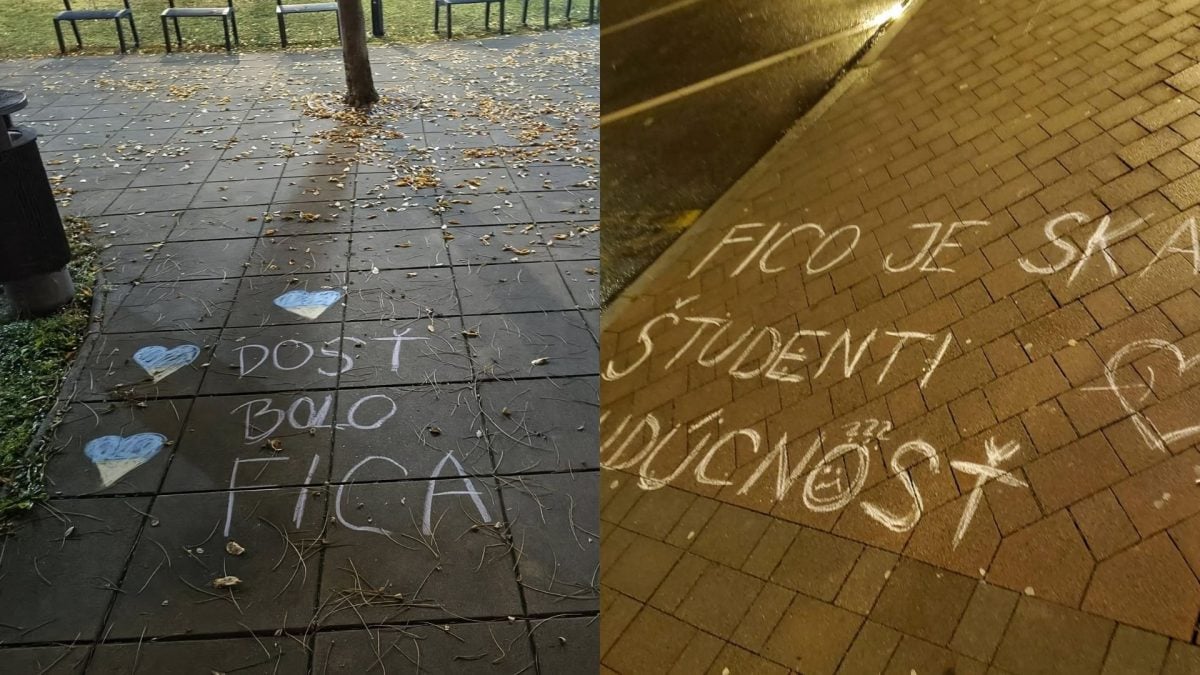 DOSŤ
BOLO
FICA
FICO JE SKA
ŠTUDENTI
UDÚCNOSŤ
zzz